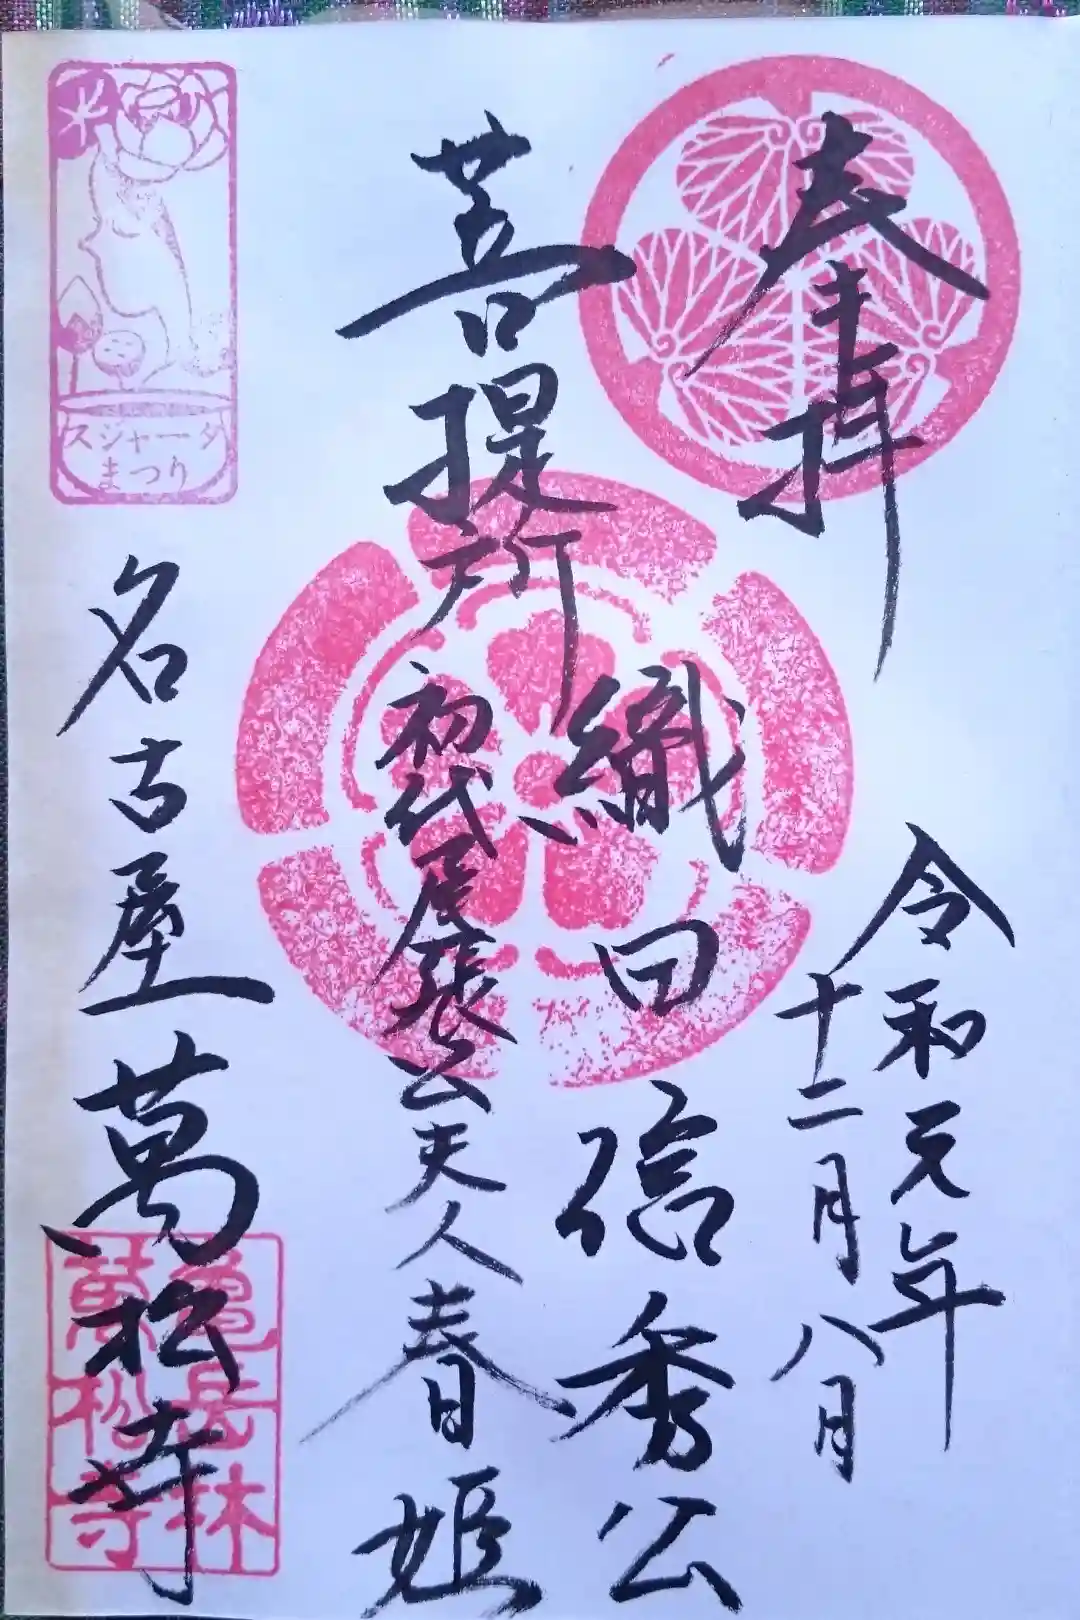 奉拝
令和元年
十二月八日
菩提所
織田信秀公
初代尾張公夫人春姫
名古屋萬松寺
スジャータ
まつり
亀岳林
萬松寺